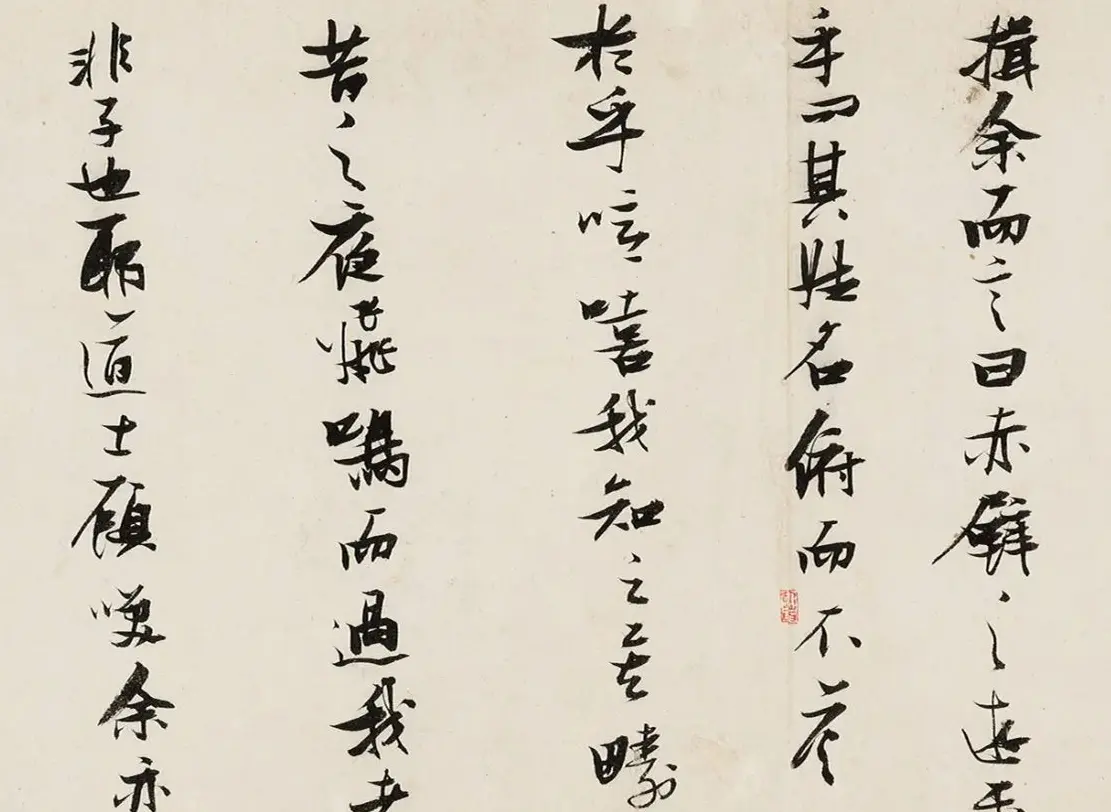 揖余而言曰赤壁之遊
乎問其姓名俯而不答
於乎噫嘻我知之矣疇
昔之夜飛鳴而過我者
非子也耶道士顧咲余亦